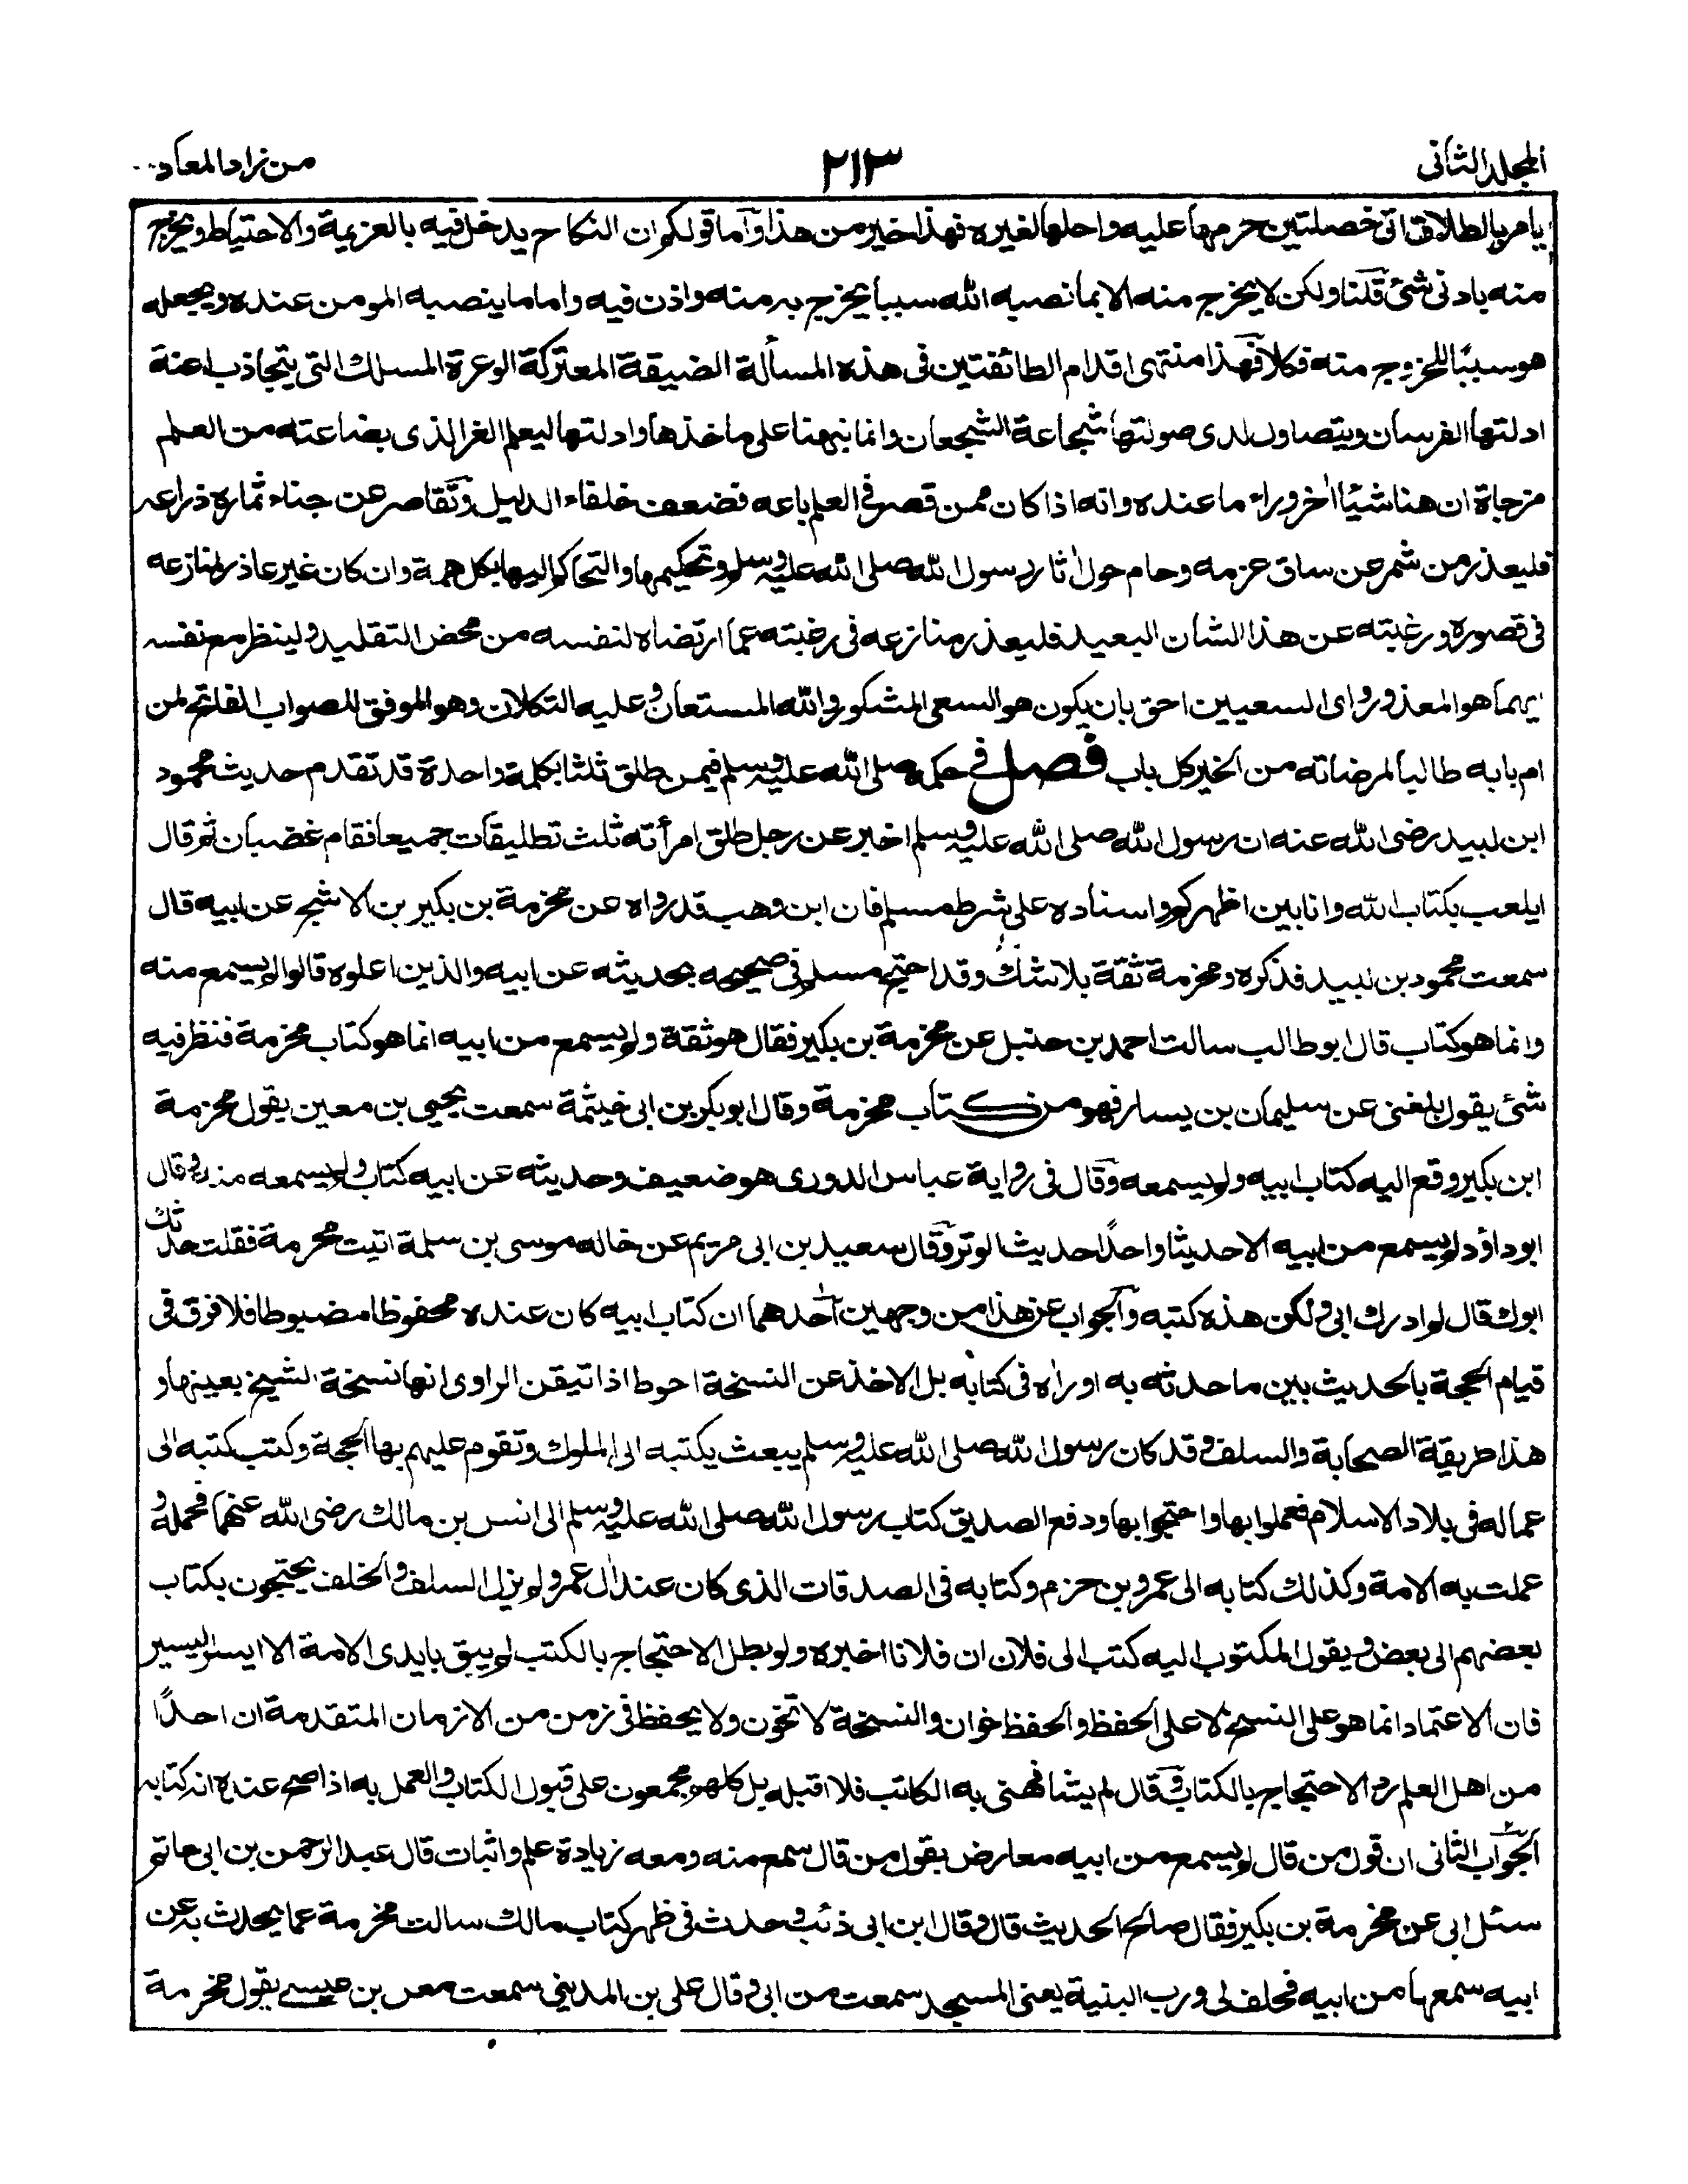 المجلد الثانى
٢١٣
من زاد المعاد
يامر بالطلاق اتى خصلتين حرمها عليه واحلها لغيره فهذا خير من هذا واما قولكم ان النكاح يدخل فيه بالعزيمة والاحتياط ويخرج
منه بادنى شئ قلنا ولكن لا يخرج منه الا بما نصبه الله سببا يخرج به منه واذن فيه واما ما ينصبه المومن عنده ويجعله
هو سببًا للخروج منه فكلا فهذا منتهى اقدام الطائفتين فى هذه المسألة الضيقة المعتركة الوعرة المسلك التى يتجاذب اعنة
ادلتها الفرسان ويتصاول لدى صولتها شجاعة الشجعان وانما نبهنا على ماخذها وادلتها ليعلم الغر الذى بضاعته من العلم
مزجاة ان هنا شيئا اخر وراء ما عنده وانه اذا كان ممن قصر فى العلم باعه فضعف خلفاء الدليل وتقاصر عن جناء ثماره ذراعه
فليعذر من شمر عن ساق عزمه وحام حول اثار رسول الله صلى الله عليه وسلم وتحكيمها والتحاكم اليها بكل همة وان كان غير عاذر لمنازعه
فى قصوره ورغبته عن هذا الشان البعيد فليعذر منازعه فى رغبته عما ارتضاه لنفسه من محض التقليد ولينظر مع نفسه
ايهما هو المعذور واى السعيين احق بان يكون هو السعى المشكور والله المستعان وعليه التكلان وهو الموفق للصواب الفاتح لمن
ام بابه طالبا لمرضاته من الخير كل باب فصل فى حكمه صلى الله عليه وسلم فيمن طلق ثلثا بكلمة واحدة قد تقدم حديث محمود
ابن لبيد رضى الله عنه ان رسول الله صلى الله عليه وسلم اخبر عن رجل طلق امرأته ثلث تطليقات جميعا فقام غضبان ثم قال
ايلعب بكتاب الله وانا بين اظهركم واسناده على شرط مسلم فان ابن وهب قد رواه عن مخرمة بن بكير بن الاشج عن ابيه قال
سمعت محمود بن لبيد فذكره ومخرمة ثقة بلا شك وقد احتج مسلم فى صحيحه بحديثه عن ابيه والذين اعلوه قالوا لم يسمع منه
وانما هو كتاب قال ابو طالب سالت احمد بن حنبل عن مخرمة بن بكير فقال هو ثقة ولم يسمع من ابيه انما هو كتاب مخرمة فنظر فيه
شئ يقول بلغنى عن سليمان بن يسار فهو من كتاب مخرمة وقال ابو بكر بن ابى خيثمة سمعت يحيى بن معين يقول مخرمة
ابن بكير وقع اليه كتاب ابيه ولم يسمعه وقال فى رواية عباس الدورى هو ضعيف وحديثه عن ابيه كتاب ولم يسمعه منه وقال
ابو داؤد لم يسمع من ابيه الا حديثا واحدًا حديث الوتر وقال سعيد بن ابى مريم عن خاله موسى بن سلمة اتيت مخرمة فقلت حدثك
ابوك قال لم ادرك ابى ولكن هذه كتبه والجواب عن هذا من وجهين احدهما ان كتاب ابيه كان عنده محفوظا مضبوطا فلا فرق فى
قيام الحجة بالحديث بين ما حدثه به او راه فى كتابه بل الاخذ عن النسخة احوط اذا تيقن الراوى انها نسخة الشيخ بعينها و
هذا طريقة الصحابة والسلف وقد كان رسول الله صلى الله عليه وسلم يبعث بكتبه الى الملوك وتقوم عليهم بها الحجة وكتب كتبه الى
عماله فى بلاد الاسلام فعملوا بها واحتجوا بها ودفع الصديق كتاب رسول الله صلى الله عليه وسلم الى انس بن مالك رضى الله عنهما فحمله و
عملت به الامة وكذلك كتابه الى عمرو بن حزم وكتابه فى الصدقات الذى كان عند ال عمر ولم يزل السلف والخلف يحتجون بكتاب
بعضهم الى بعض ويقول المكتوب اليه كتب الى فلان ان فلانا اخبره ولو بطل الاحتجاج بالكتب لم يبق بايدى الامة الا ايسر اليسير
فان الاعتماد انما هو على النسخ لا على الحفظ والحفظ خوان والنسخة لا تخون ولا يحفظ فى زمن من الازمان المتقدمة ان احدًا
من اهل العلم رد الاحتجاج بالكتاب وقال لم يشافهنى به الكاتب فلا اقبله بل كلهم مجمعون على قبول الكتاب والعمل به اذا صح عنده انه كتابه
الجواب الثانى ان قول من قال لم يسمع من ابيه معارض بقول من قال سمع منه ومعه زيادة علم واثبات قال عبد الرحمن بن ابى حاتم
سئل ابى عن مخرمة بن بكير فقال صالح الحديث قال وقال ابن ابى ذئب وحدث فى ظهر كتاب مالك سالت مخرمة عما يحدث به عن
ابيه سمعها من ابيه فحلف لى ورب البنية يعنى المسجد سمعت من ابى وقال على بن المدينى سمعت معن بن عيسى يقول مخرمة